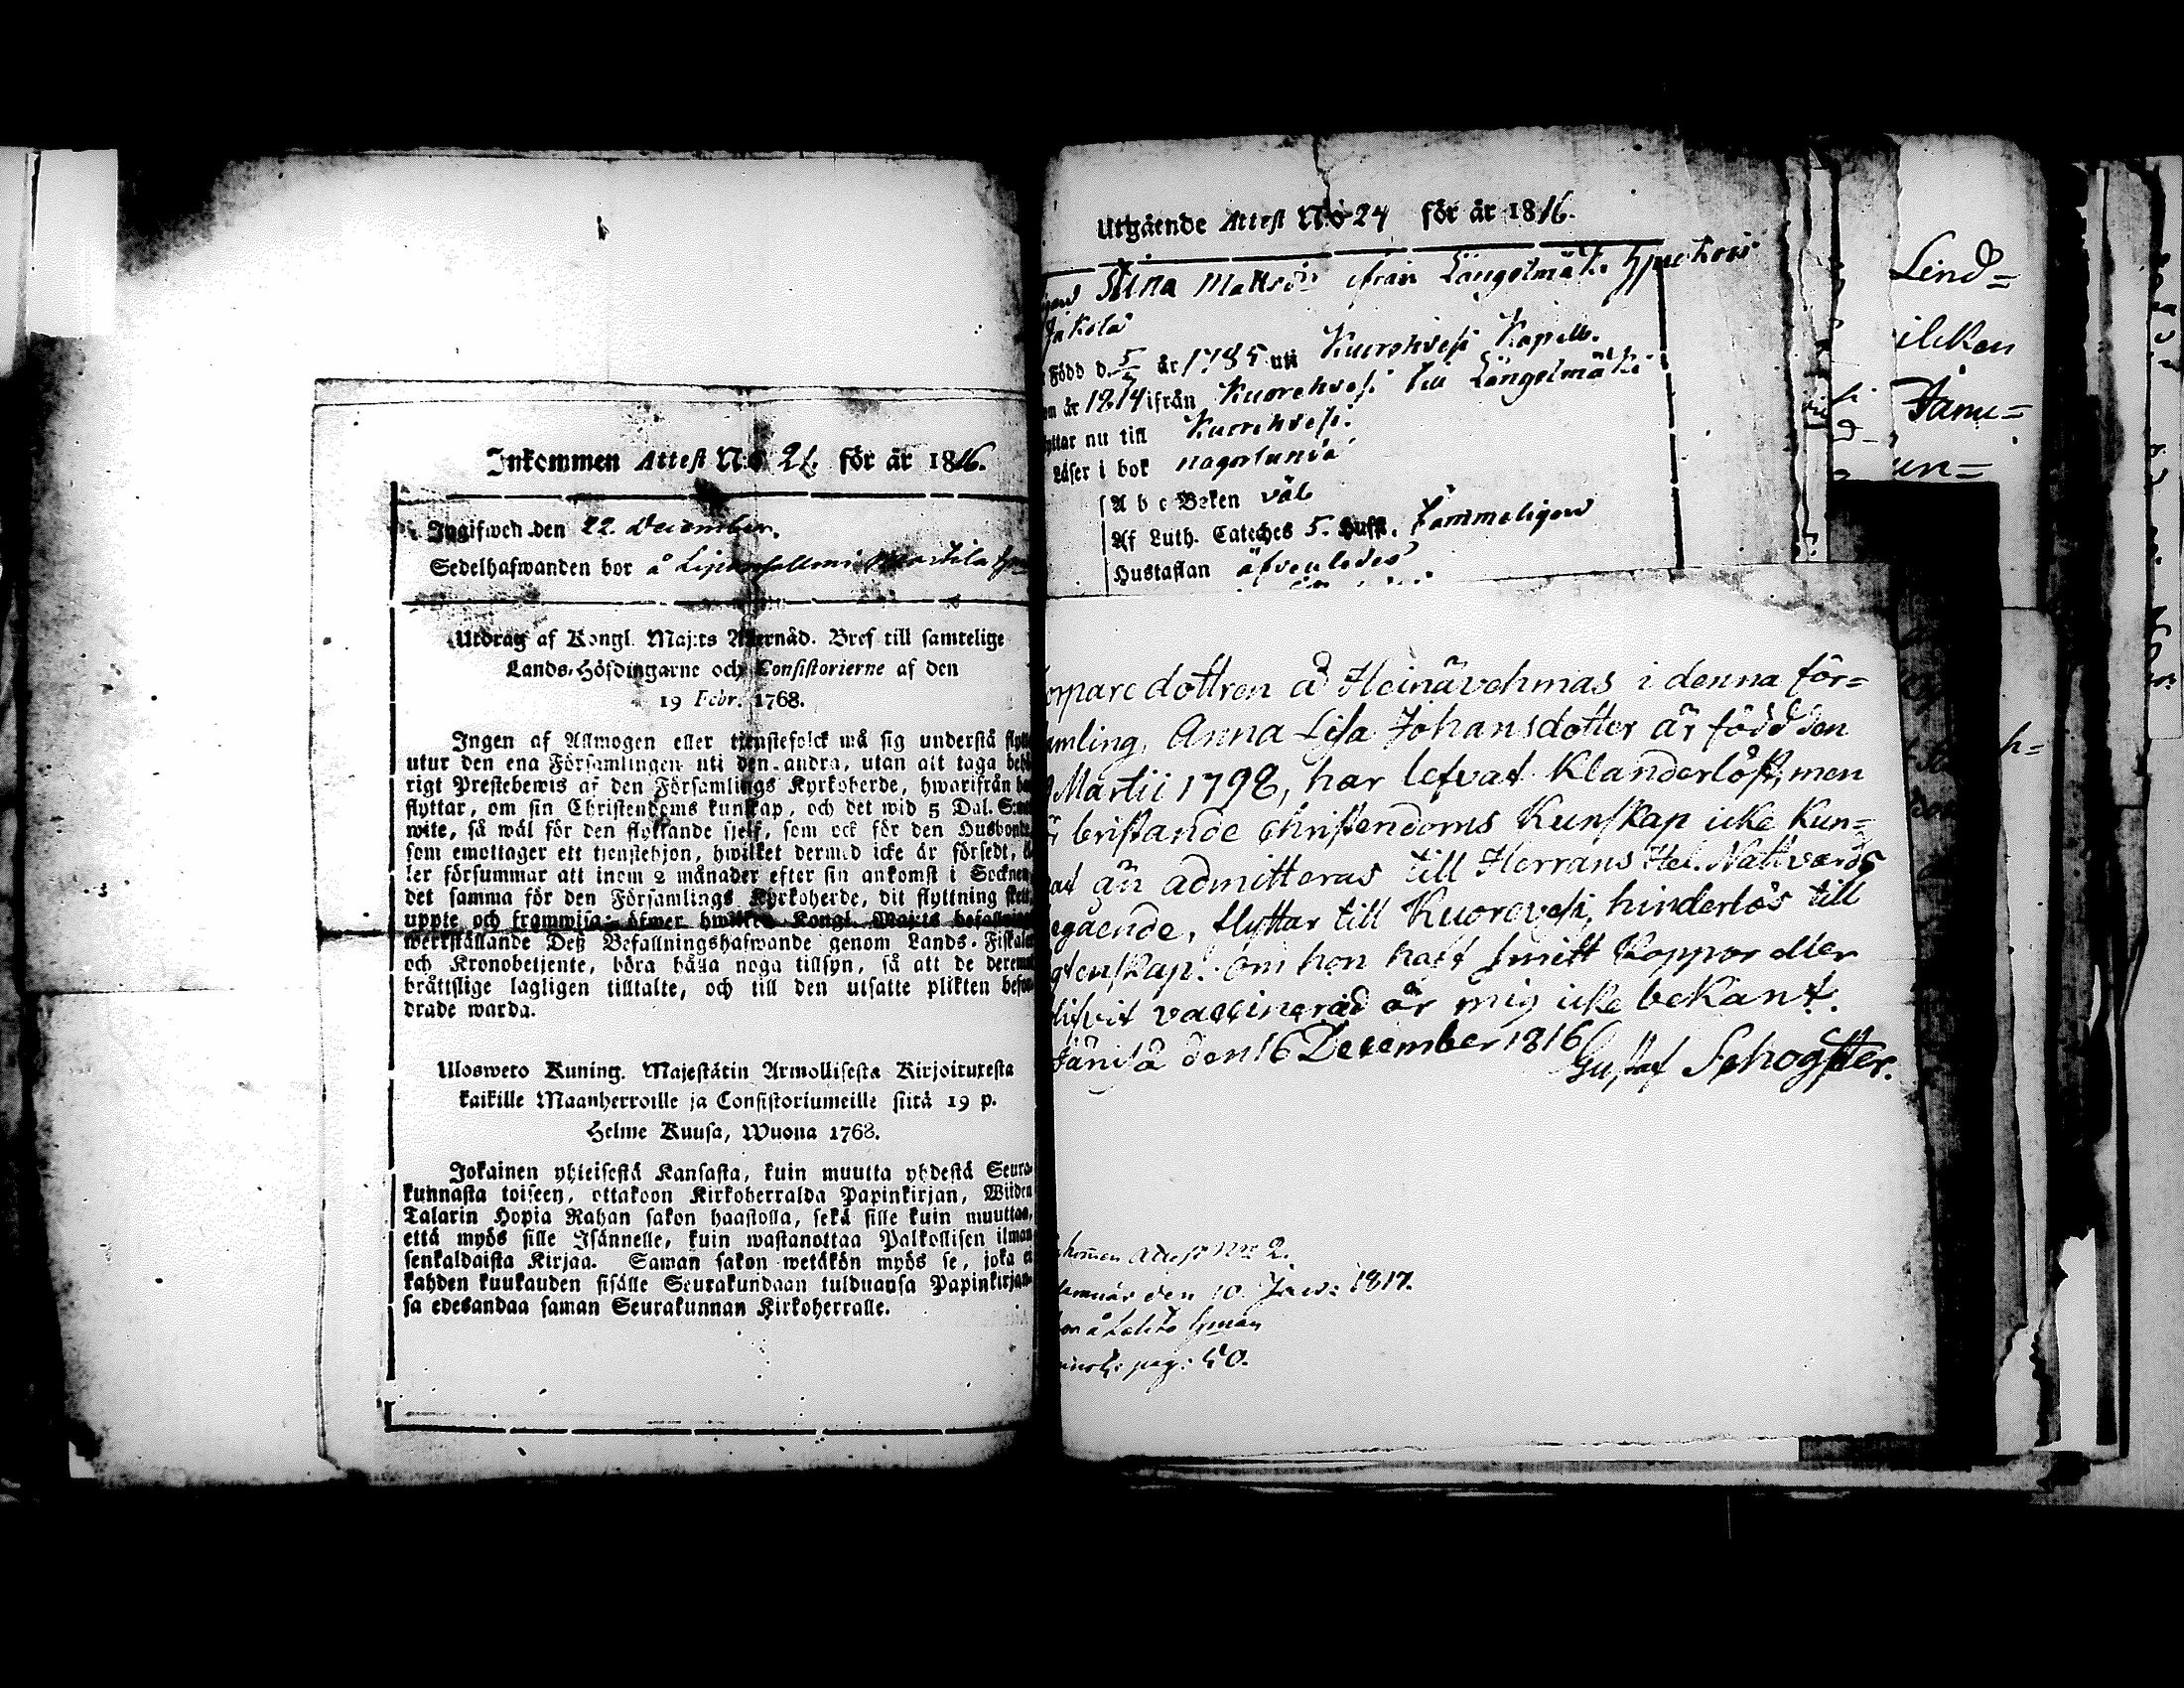 Inkommen Attest N:o 21. för år 1816.
Ingifwen den 22 December.
Sedelhafwanden bor å
Utdrag af Kongl. Maj:ts Allernåd. Bref till samtelige
Lands-Höfdingarne och Consistorierne af den
19 Febr. 1768.
Ingen af Allmogen eller tienstefolck må sig understå
utur den ena Församlingen uti den andra, utan att taga
rigt Prestebewis af den Församlings Kyrkoherde, hwarifrån
flyttar, om sin Christendoms kunskap, och det wid 5 Dal. S:mt
wite, så wäl för den flyttande sielf, som ock för den Husbonde
som emottager ett tienstehjon, hwilket dermed icke är försedt,
ler försummar att inom 2 månader efter sin ankomst i Socknen
det samma för den Församlings Kyrkoherde, dit flyttning
uppte och framwisa; öfwer hwilka Kongl. Maj:ts
werkställande Deß Befallningshafwande genom Lands-Fiskaler
och Kronobetjente, böra hålla noga tillsyn, så att de deremot
bråttslige lagligen tilltalte, och till den utsatte plikten
drade warda.
Ulosweto Kuning. Majestätin Armollisesta Kirjoituxesta
kaikille Maanherroille ja Consistoriumeille siitä 19 p.
Helme Kuusa, Wuona 1768.
Jokainen yhteisestä Kansasta, kuin muutta yhdestä Seura-
kunnasta toiseen, ottakoon Kirkoherralda Papinkirjan, Wiiden
Talarin Hopia Rahan sakon haastolla, sekä sille kuin muuttaa,
että myös sille Isännelle, kuin wastanottaa Palkollisen ilman
senkaldaista Kirjaa. Saman sakon wetäkön myös se, joka ei
kahden kuukauden sisälle Seurakundaan tulduansa Papinkirjan-
sa edesandaa saman Seurakunnan Kirkoherralle.
Utgående Attest N:o 24 för år 1816.
Stina Mattsdr ifrån Längelmäki
Född d. 5/7 år 1785 uti Kuorehvesi Kapell.
år 1814 ifrån Kuorehvesi till Längelmäki
nu till Kuorehvesi.
Läser i bok någorlunda
A b c Boken väl
Af Luth. Cateches 5. Hufst. Tämmeligen
Hustaflan äfvenledes
dottren å Heinävehmas i denna för=
samling, Anna Lisa Johansdotter är född den
Martii 1798, har lefvat Klanderlöst, men
bristande christendoms Kunskap icke Kun=
nat än admitteras till Herrans Hel. Nattvards
begående, flyttar till Kuorevesi, hinderlös till
ägtenskap. Om hon haft smitt Koppor eller
blifvit vaccinerad är mig icke bekant.
Jämsä den 16 December 1816
Gustaf Schogster.
Inkommen Attest Nro 2.
den 10. Janu: 1817.
pag: 50.
Lind=
ilcken
Janu=
un=
h=